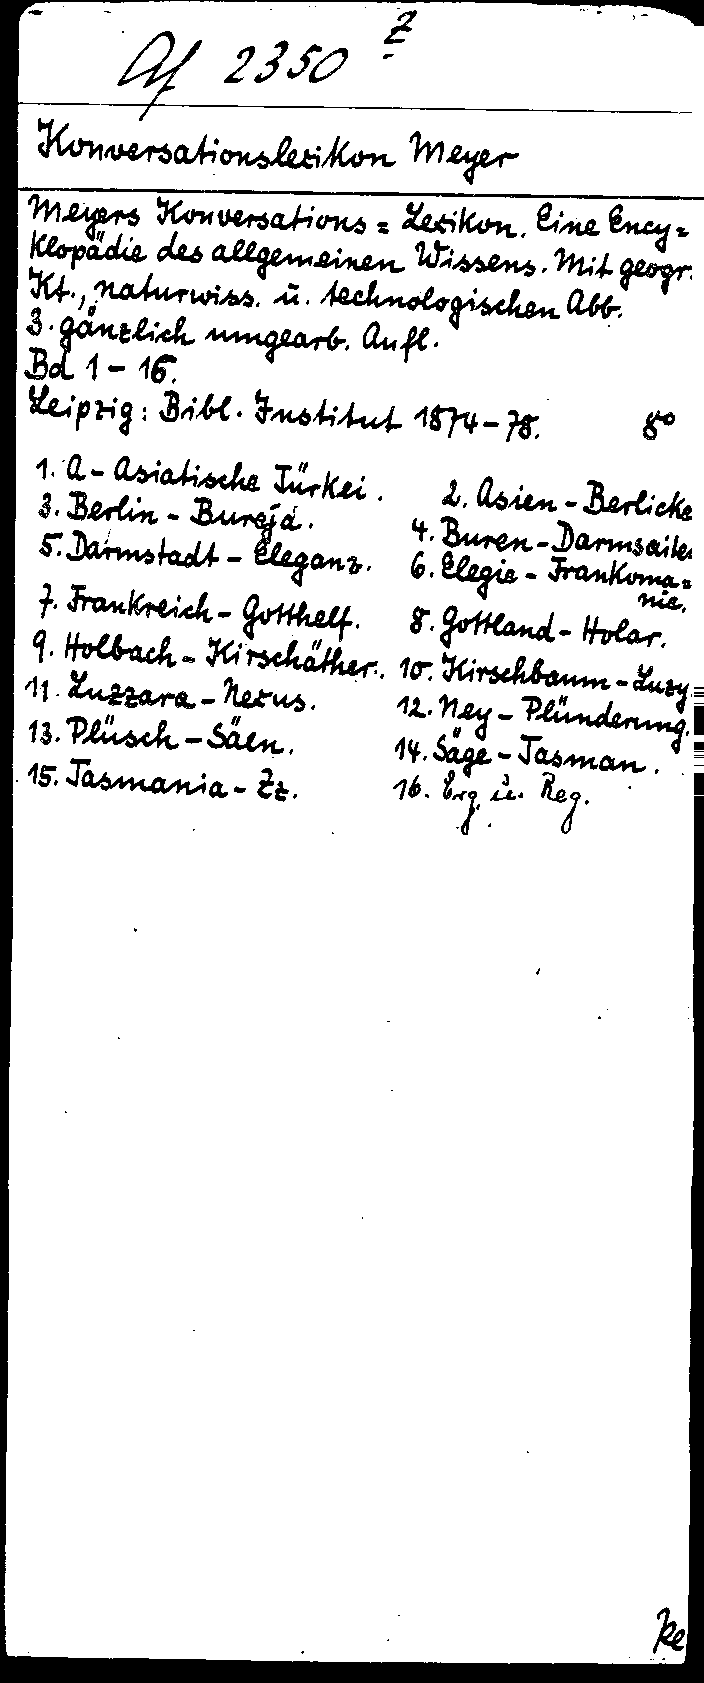 Af 2350 Z
Konversationslexikon Meyer
Meyers Konversations = Lexikon. Eine Ency=
klopädie des allgemeinen Wissens. Mit geogr.
Kt., naturwiss. u. technologischen Abb.
3. gänzlich umgearb. Aufl.
Bd 1 - 16.
Leipzig: Bibl. Institut 1874-78. 8°
1. A - Asiatische Türkei. 2. Asien - Berlicke
3. Berlin - Bureja. 4. Buren - Darmsaiten
5. Darmstadt - Eleganz. 6. Elegie - Frankoma=
nie.
7. Frankreich - Gotthelf. 8. Gottland - Holar.
9. Holbach - Kirschäther. 10. Kirschbaum - Luzy
11. Luzzara - Nexus. 12. Ney - Plünderung.
13. Plüsch - Säen. 14. Säge - Tasman.
15. Tasmania - Zz. 16. Erg. u. Reg.
Ke